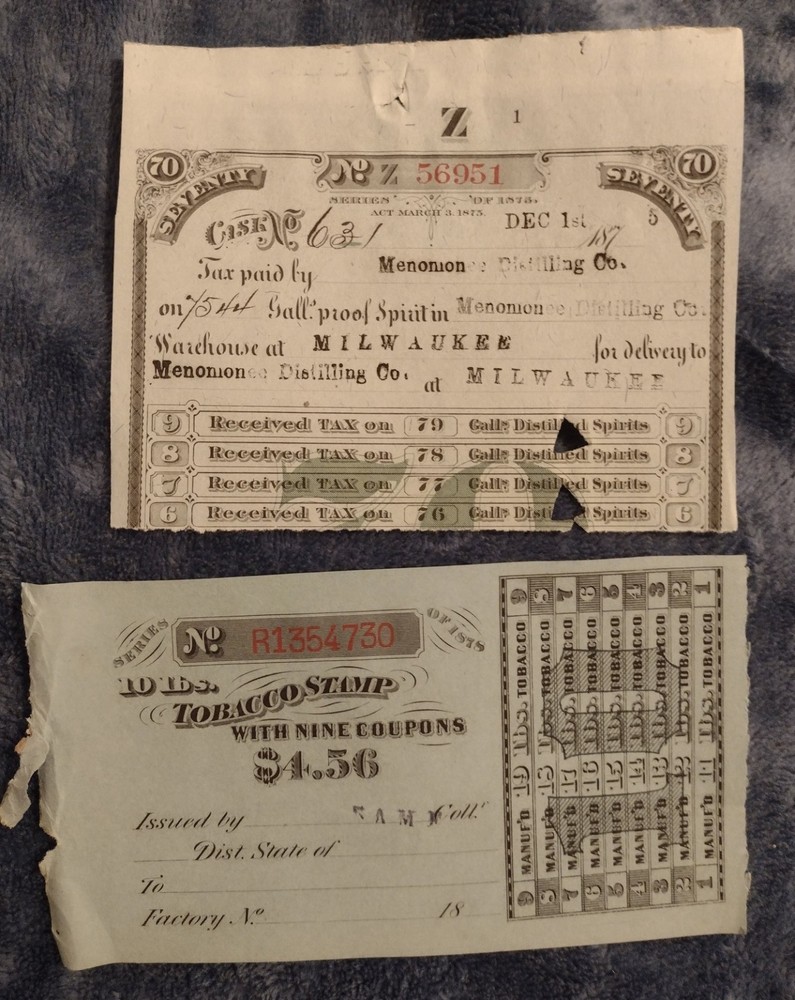 Z 1
70 SEVENTY No Z 56951 SEVENTY 70
SERIES OF 1875.
ACT MARCH 3. 1875.
Cask No 631 DEC 1st 187 5
Tax paid by Menomonee Distilling Co.
on 7544 Galls proof Spirit in Menomonee Distilling Co.
Warehouse at MILWAUKEE for delivery to
Menomonee Distilling Co. at MILWAUKEE
9 Received TAX on 79 Galls Distilled Spirits 9
8 Received TAX on 78 Galls Distilled Spirits 8
7 Received TAX on 77 Galls Distilled Spirits 7
6 Received TAX on 76 Galls Distilled Spirits 6
70
SERIES No R1354730 OF 1878
10 lbs.
TOBACCO STAMP
WITH NINE COUPONS
$4.56
Issued by Collr
Dist. State of
To
Factory No. 18
9 MANUF'D 19 lbs. TOBACCO 9
8 MANUF'D 18 lbs. TOBACCO 8
7 MANUF'D 17 lbs. TOBACCO 7
6 MANUF'D 16 lbs. TOBACCO 6
5 MANUF'D 15 lbs. TOBACCO 5
4 MANUF'D 14 lbs. TOBACCO 4
3 MANUF'D 13 lbs. TOBACCO 3
2 MANUF'D 12 lbs. TOBACCO 2
1 MANUF'D 11 lbs. TOBACCO 1